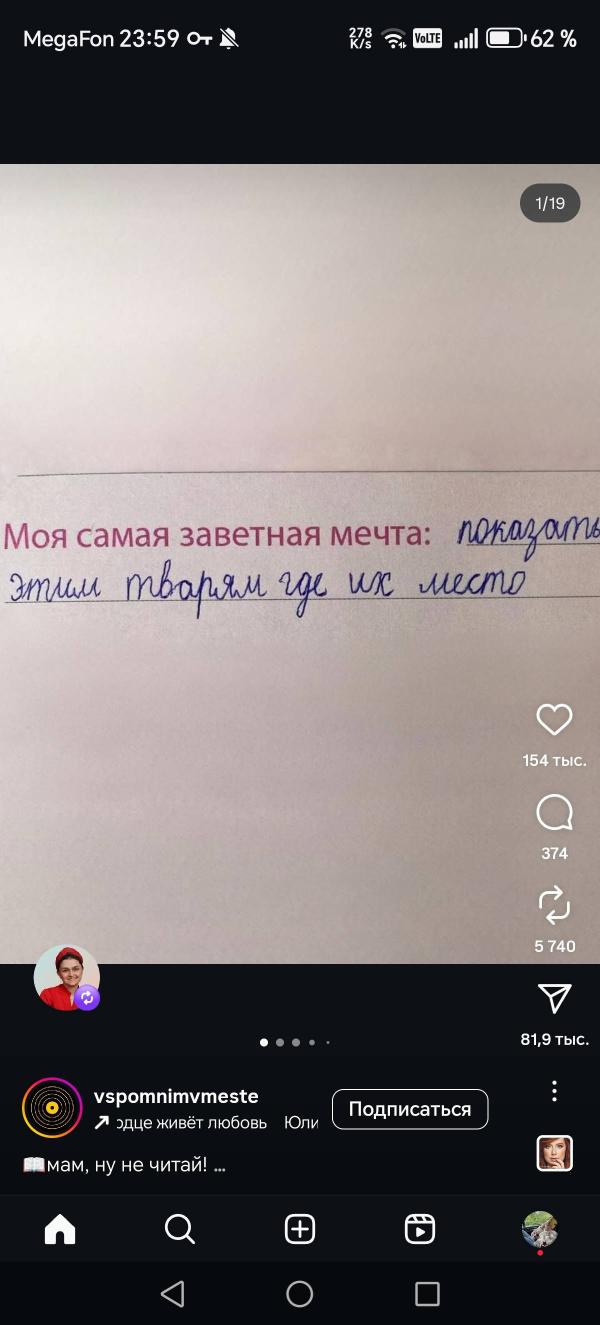 MegaFon 23:59 278 K/s VoLTE 62 %
1/19
Моя самая заветная мечта: показать
этим тварям где их место
154 тыс.
374
5 740
81,9 тыс.
vspomnimvmeste
рдце живёт любовь Юли
Подписаться
мам, ну не читай! ...